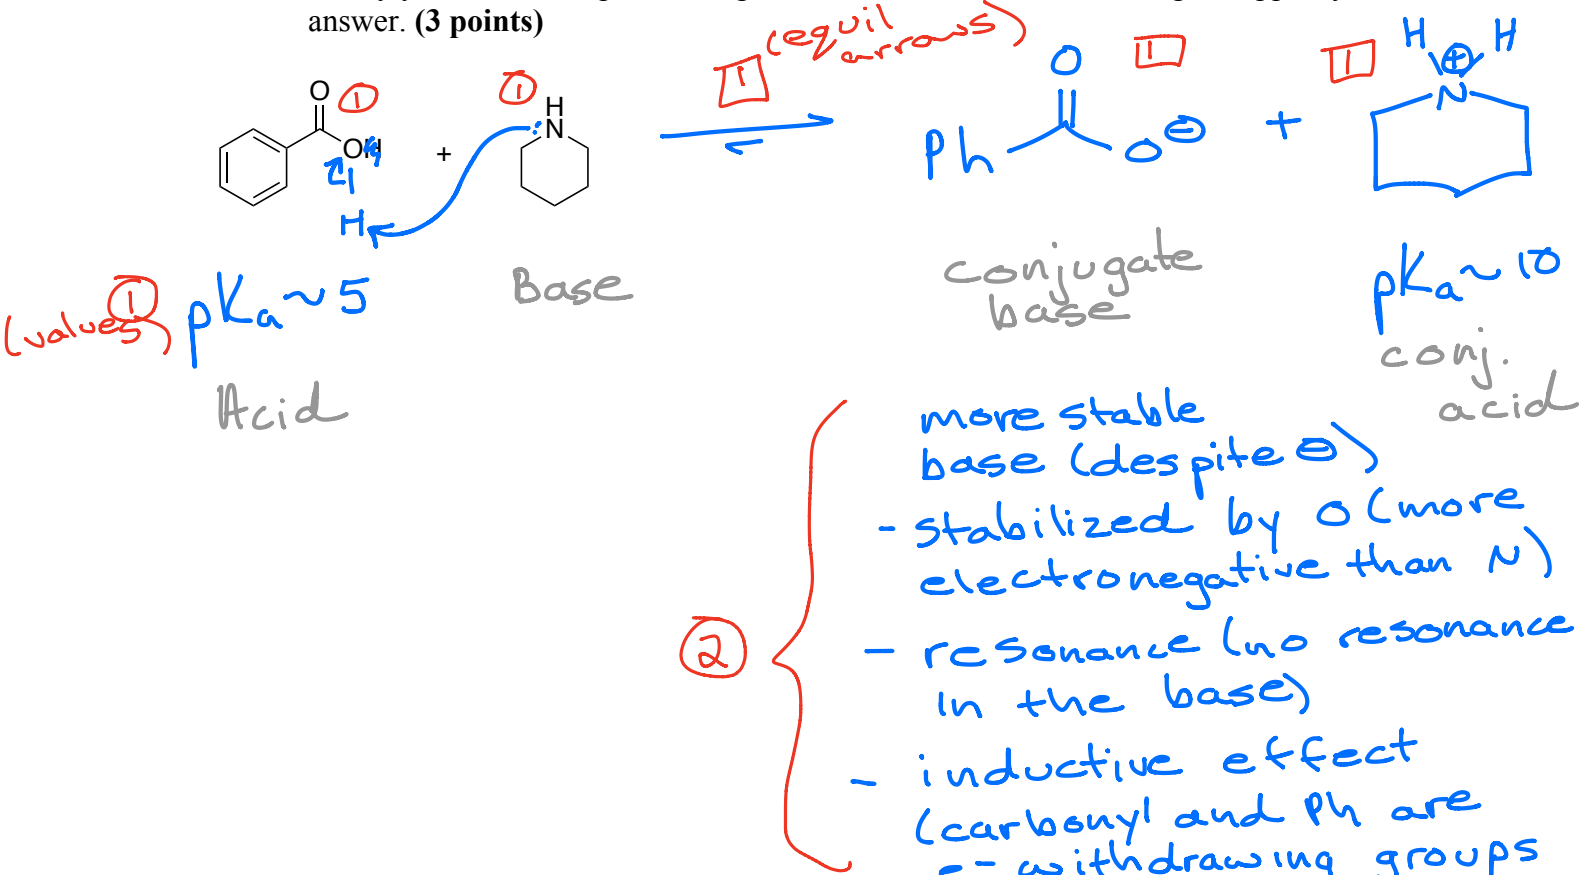 answer. (3 points)
(equil arrows)
1
1
1
1
1
O
OH
H
+
H
N
O
Ph
O⊖
+
H ⊕ H
N
(values)
1
pKa ~ 5
Acid
Base
conjugate
base
pKa ~ 10
conj.
acid
2
more stable
base (despite ⊖)
- stabilized by O (more
electronegative than N)
- resonance (no resonance
in the base)
- inductive effect
(carbonyl and Ph are
e- withdrawing groups